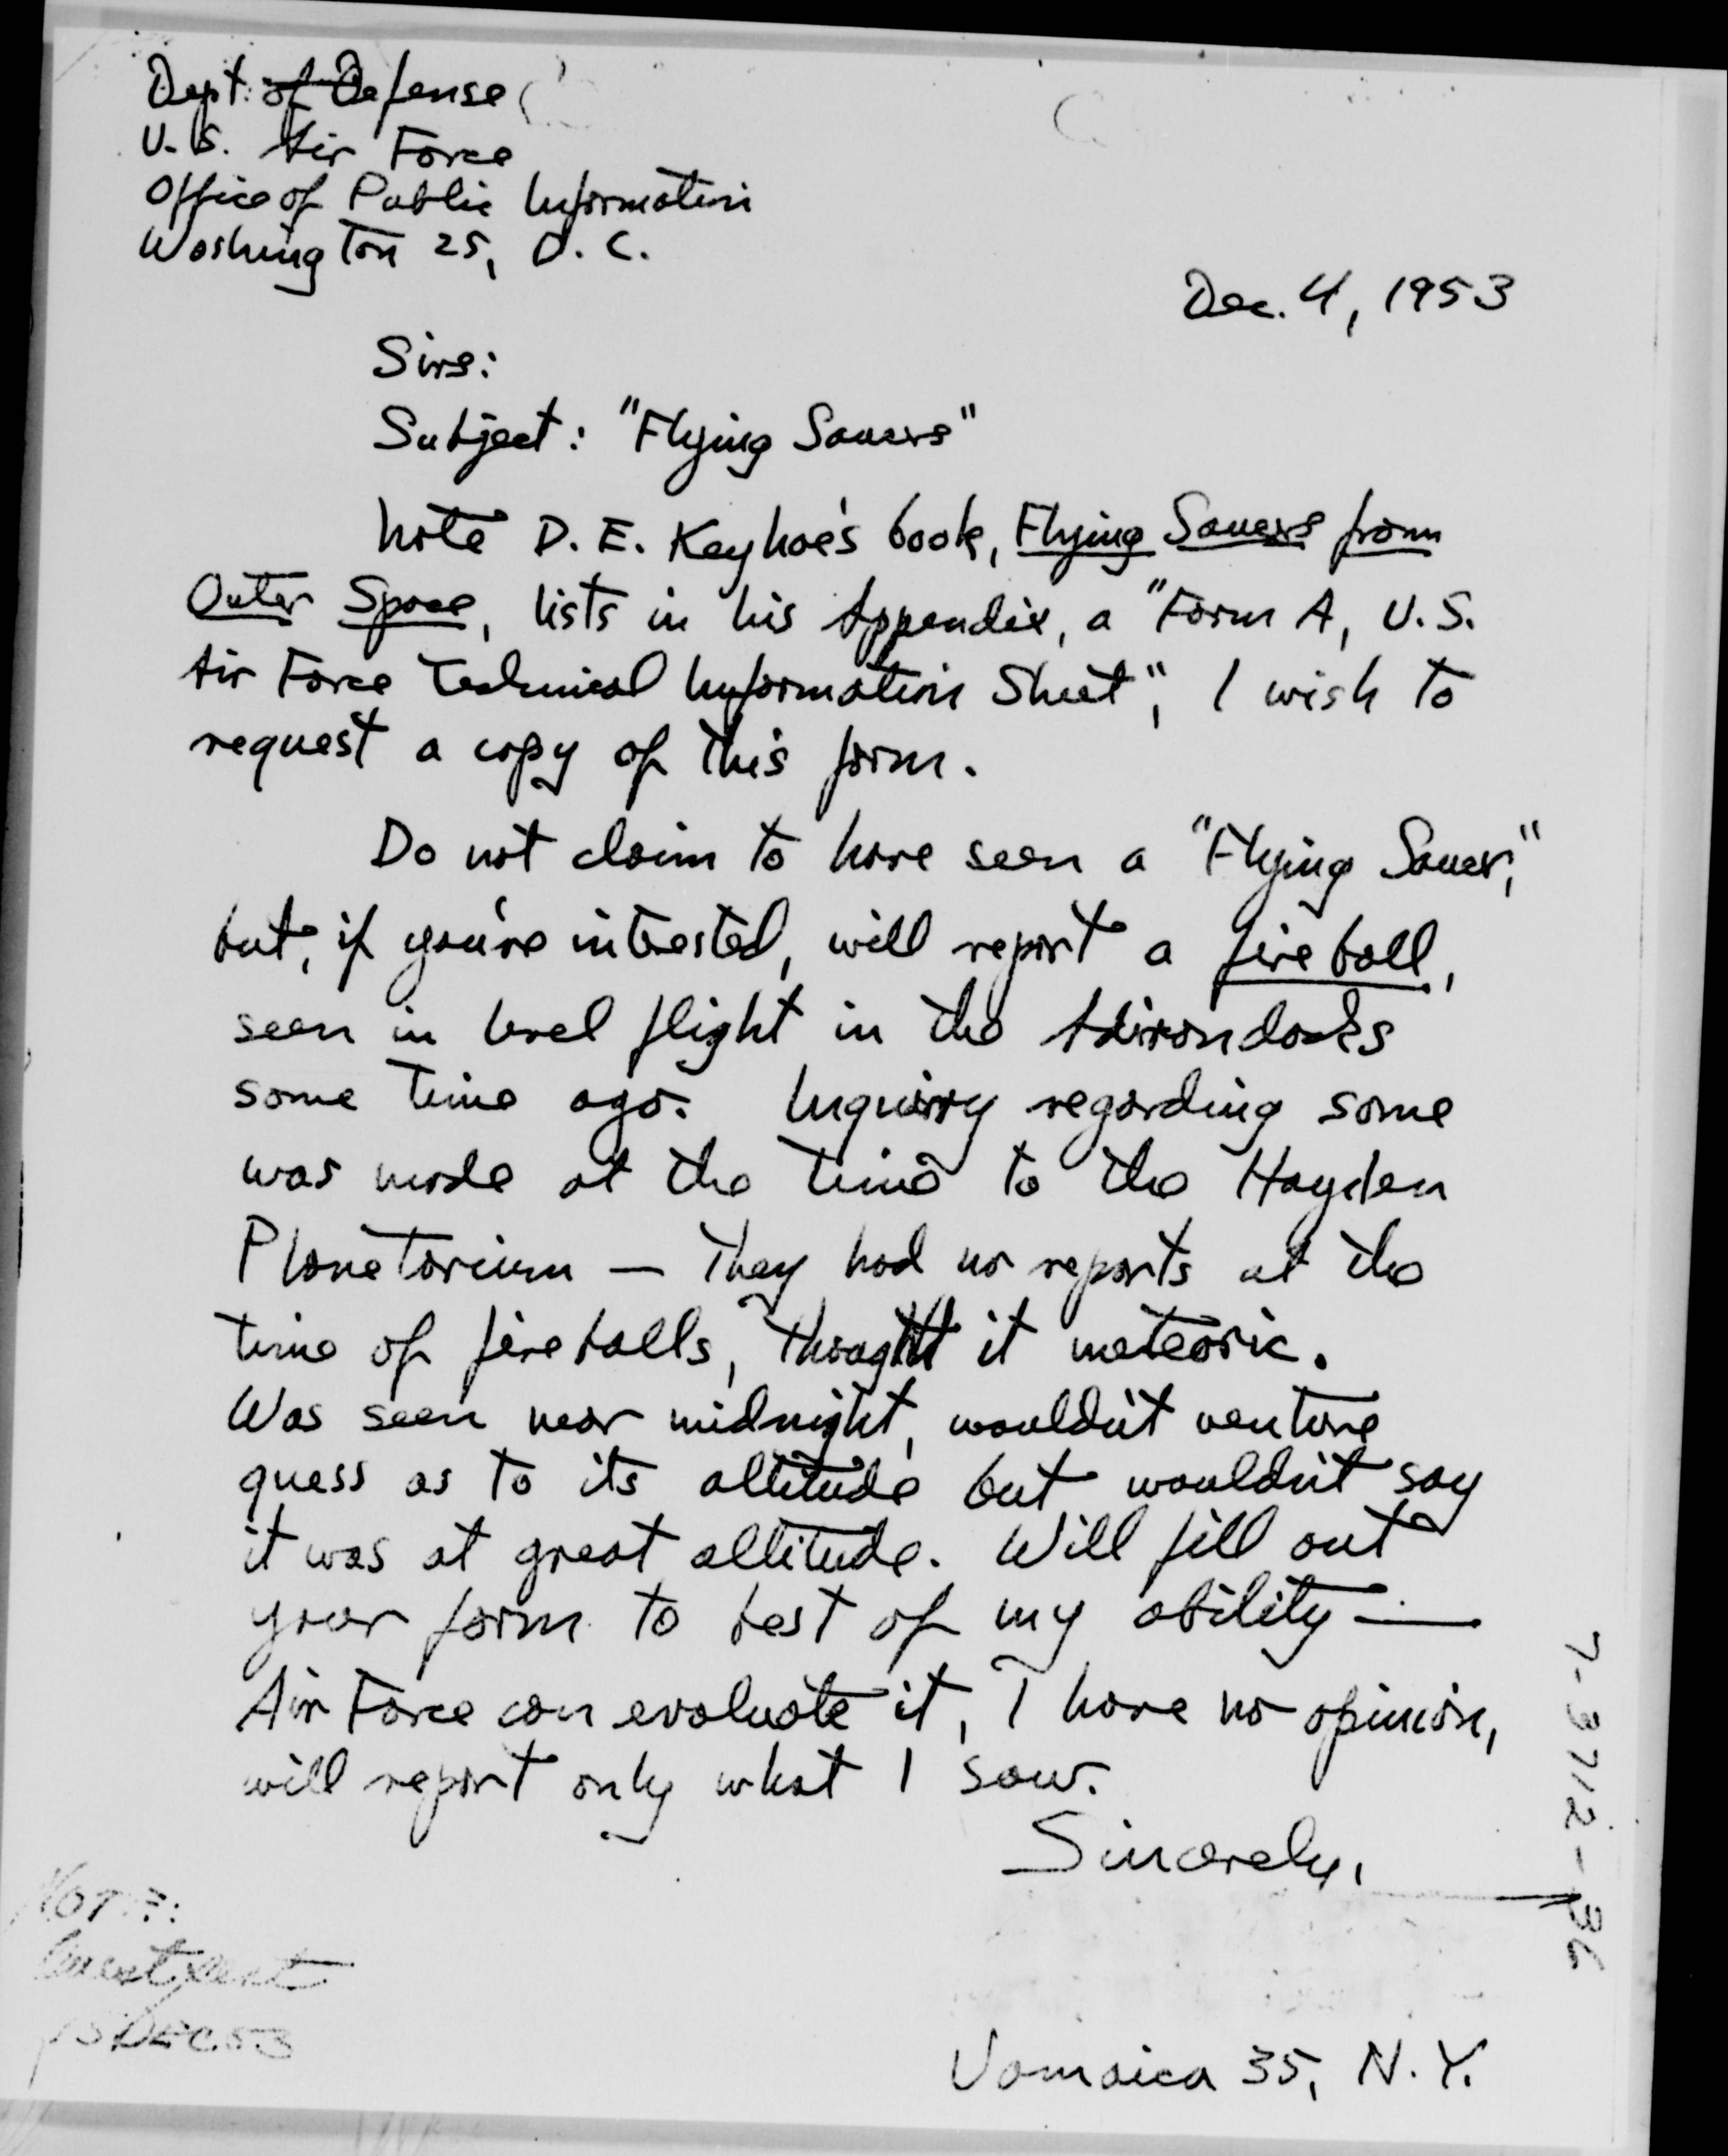 Dept. of Defense
U.S. Air Force
Office of Public Information
Washington 25, D.C.
Dec. 4, 1953
Sirs:
Subject: "Flying Saucers"
Note D. E. Keyhoe's book, Flying Saucers from
Outer Space, lists in his Appendix, a "Form A, U.S.
Air Force Technical Information Sheet", I wish to
request a copy of this form.
Do not claim to have seen a "Flying Saucer,"
but, if you're interested, will report a fireball,
seen in level flight in the Adirondacks
some time ago. Inquiry regarding same
was made at the time to the Hayden
Planetarium — They had no reports at the
time of fireballs, thought it meteoric.
Was seen near midnight, wouldn't venture
guess as to its altitude but wouldn't say
it was at great altitude. Will fill out
your form to best of my ability —
Air Force can evaluate it, I have no opinion,
will report only what I saw.
Sincerely,
Jamaica 35, N.Y.
NOTE:
DEC 53
7-3712-